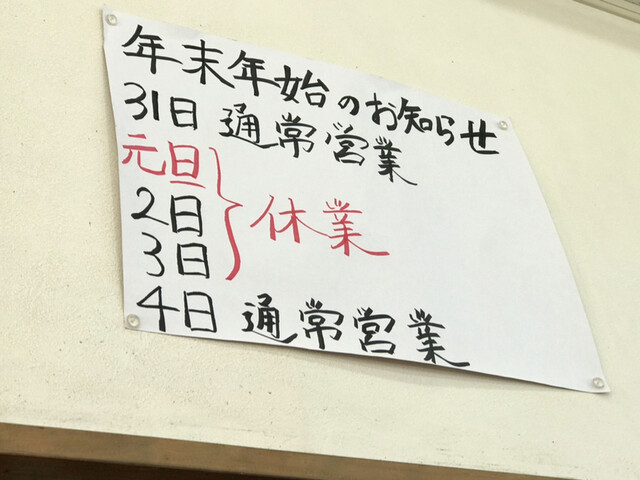 年末年始のお知らせ
31日 通常営業
元旦
2日
3日
休業
4日 通常営業